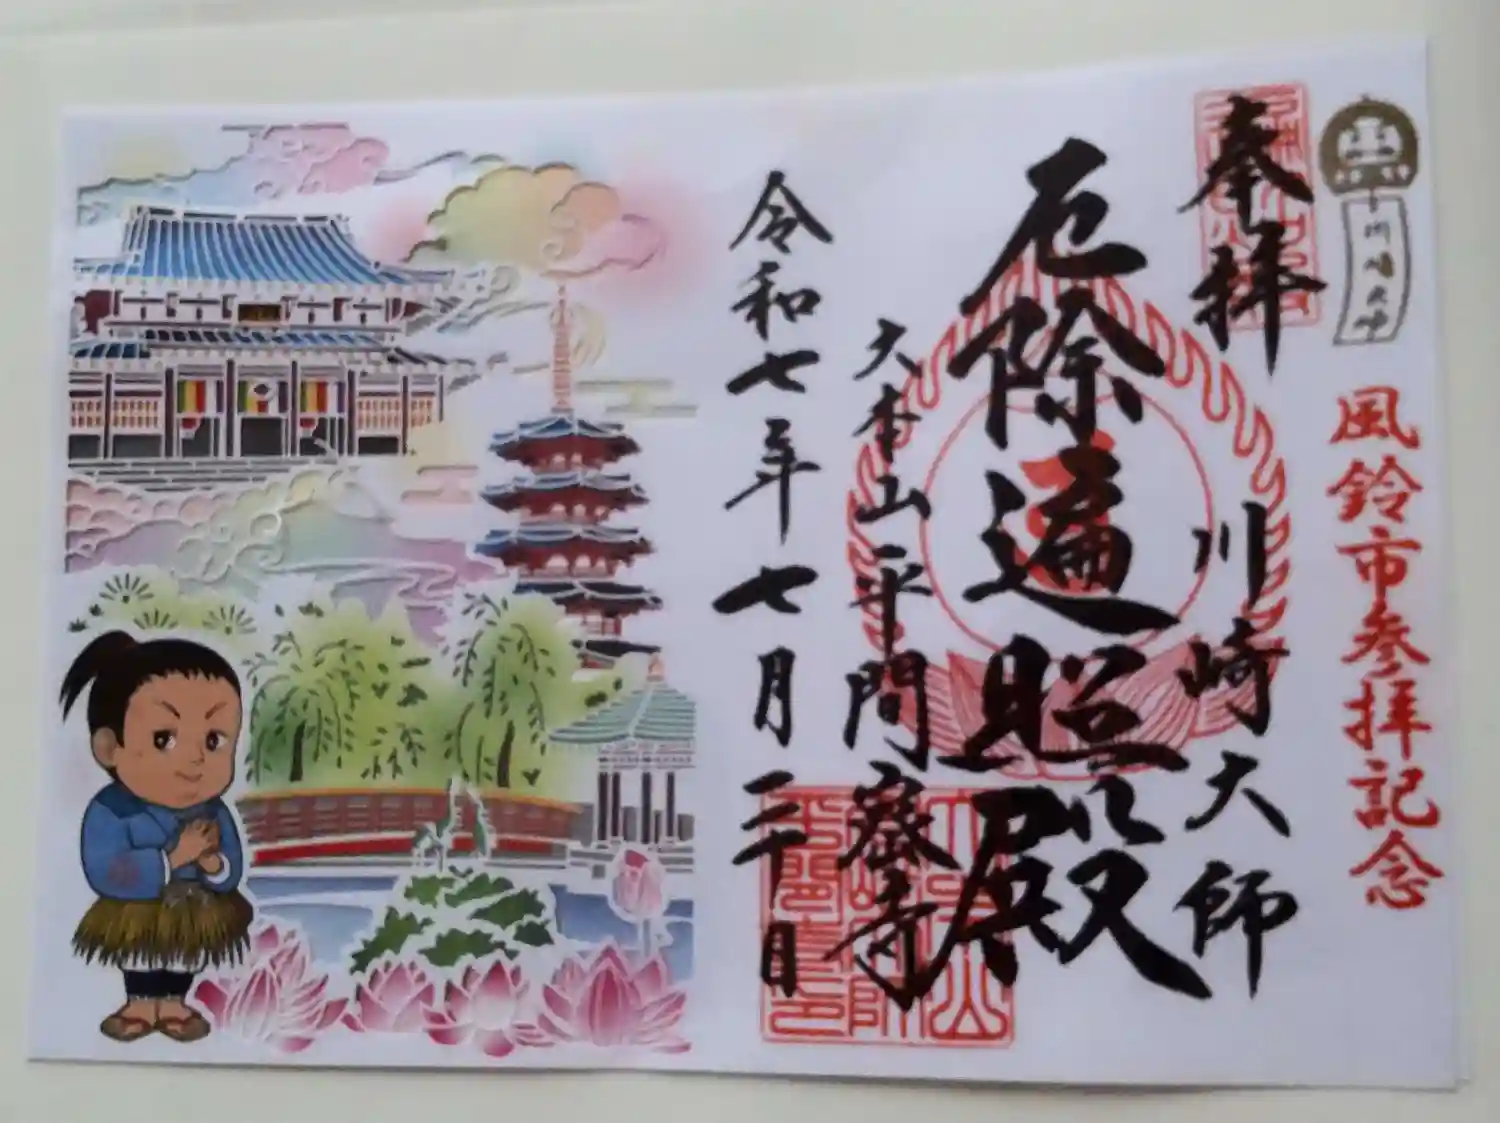 川崎大師
風鈴市参拝記念
奉拝
川崎大師
厄除遍照殿
大本山平間寺
令和七年七月二十日